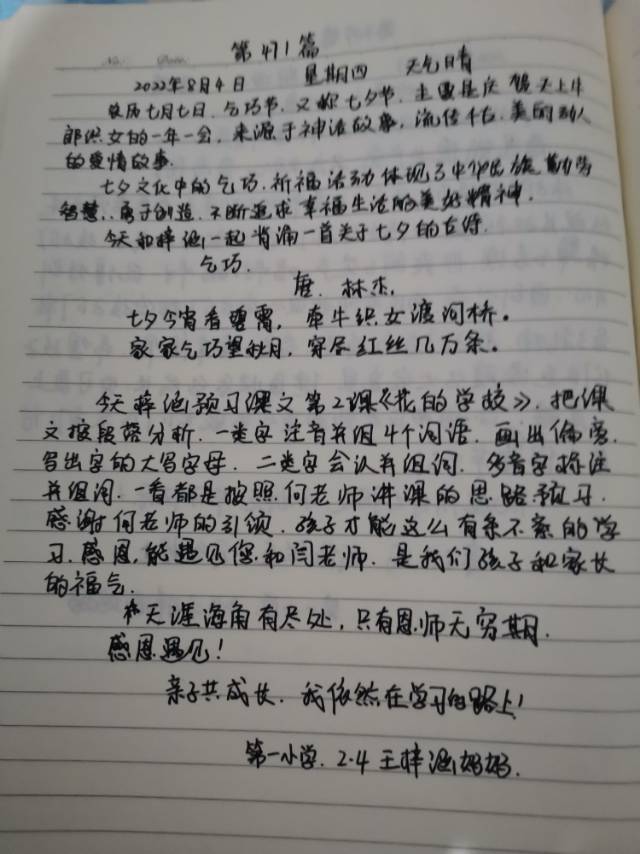 第471篇
2022年8月4日 星期四 天气晴
农历七月七日，乞巧节，又称七夕节，主要是庆贺天上牛
郎织女的一年一会，来源于神话故事，流传千古，美丽动人
的爱情故事.
七夕文化中的乞巧.祈福活动体现了中华民族勤劳
智慧、勇于创造、不断追求幸福生活的美好精神.
今天和梓涵一起背诵一首关于七夕的古诗.
乞巧.
唐. 林杰.
七夕今宵看碧霄，牵牛织女渡河桥。
家家乞巧望秋月，穿尽红丝几万条。
今天梓涵预习课文第2课《花的学校》，把课
文按段落分析.一类字注音并组4个词语.画出偏旁，
写出字的大写字母.二类字会认并组词.多音字标注
并组词.一看都是按照何老师讲课的思路预习.
感谢何老师的引领.孩子才能这么有条不紊的学
习.感恩,能遇见您和闫老师.是我们孩子和家长
的福气.
天涯海角有尽处，只有恩师无穷期.
感恩遇见！
亲子共成长.我依然在学习的路上！
第一小学.2.4王梓涵妈妈.